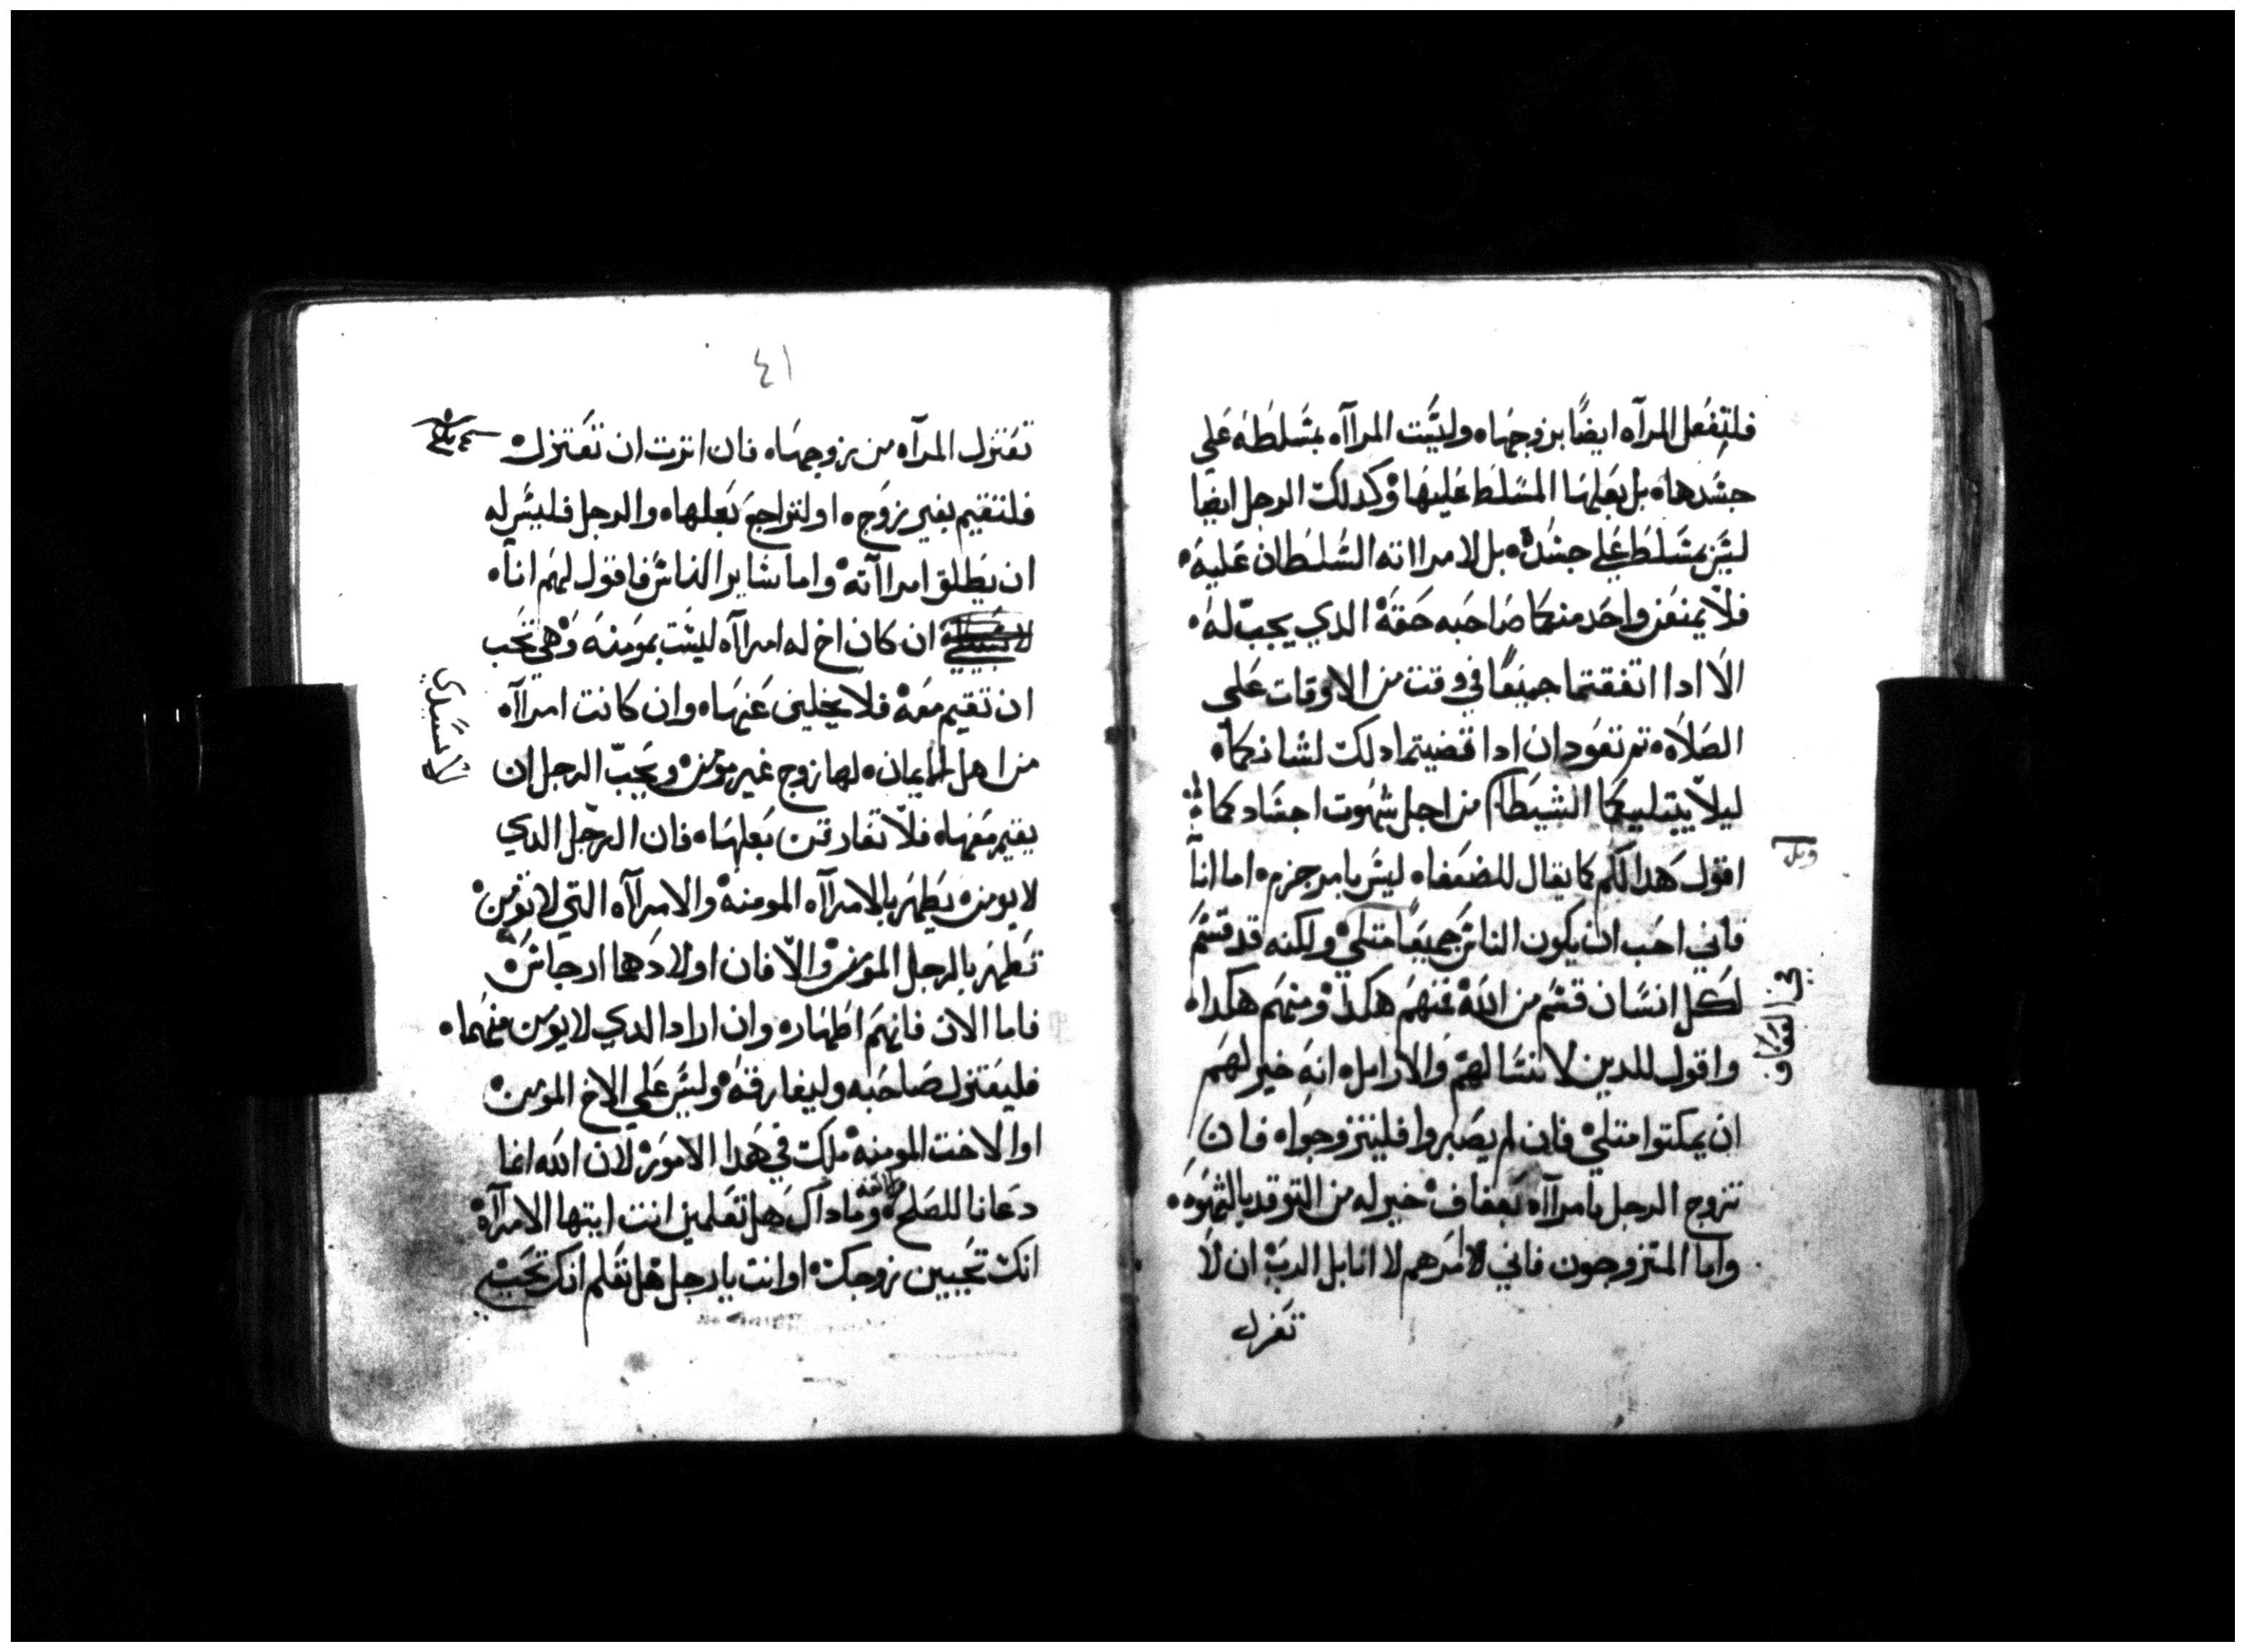 فلتفعل المرآه ايضًا بزوجهاه وليست المراآه بمسلطه علي
جسدهاه بل بعلها المسلط عليها وكدلك الرجل ايضا
ليس بمسلط علي جسده بل لامرااته السلطان عليه
فلا يمنعن واحد منكما صاحبه حقه الدي يجب له
الا ادا اتفقتما جميعًا في وقت من الاوقات علي
الصلاه تم تعودان ادا قضيتما دلك لشانكما
ليلا يبتليكما الشيطان من اجل شهوت اجسادكما
وبل
اقول هدا لكم كما يقال للضعفاه ليس بامر جزم اما انا
فاني احب ان يكون الناس جميعًا متلي ولكنه قد قسم
لكل انسان قسم من الله فمنهم هكدا ومنهم هكدا
واقول للدين لا نسا لهم والارامل انه خير لهم
ان يمكتوا متلي فان لم يصبروا فليتزوجواه فان
تزوج الرجل بامراآه بعفاف خير له من التوقد بالشهوه
واما المتزوجون فاني لامرهم لا انا بل الرب ان لا
تعزل
٤١
تعتزل المرآه من زوجهاه فان اترت ان تعتزل
فلتقيم بغير زوج او لتراجع بعلهاه والرجل فليس له
ان يطلق امراآته واما ساير الناس فاقول لهم اناه
ان كان اخ له امراآه ليست بمومنه وهي تحب
ان تقيم معه فلا يخلين عنهاه وان كانت امراآه
من اهل الايمان لها زوج غير مومن ويحب الرجل ان
يقيم معهاه فلا تفارقن بعلهاه فان الرجل الدي
لا يومن يطهر بالامراآه المومنه والامراآه التي لا تومن
تطهر بالرجل المومن والا فان اولادها ارجاس
فاما الان فانهم اطهاره وان اراد الدي لا يومن منهما
فليعتزل صاحبه وليفارقه وليس علي الاخ المومن
او الاخت المومنه ملك في هدا الامور لان الله انما
دعانا للصلح وماداك هل تعلمين انت ايتها الامراآه
انك تحيين زوجك او انت يا رجل هل تعلم انك تحيي